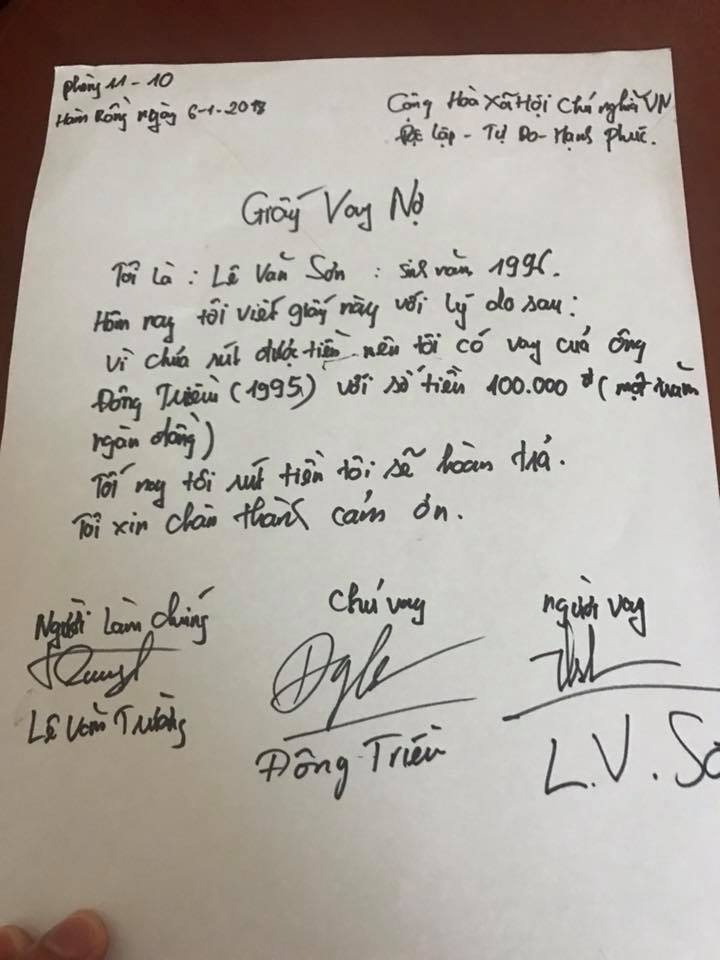 Phòng 11-10
Hàm Rồng ngày 6-1-2018
Cộng Hoà Xã Hội Chủ nghĩa VN
Độc lập - Tự Do - Hạnh Phúc.
Giấy Vay Nợ
Tôi là : Lê Văn Sơn : sinh năm 1996.
Hôm nay tôi viết giấy này với lý do sau :
vì chưa rút được tiền nên tôi có vay của ông
Đông Triều (1995) với số tiền 100.000 đ (một trăm
ngàn đồng)
Tối nay tôi rút tiền tôi sẽ hoàn trả.
Tôi xin chân thành cảm ơn.
Người làm chứng
Chủ vay
người vay
Lê Văn Trường
Đông Triều
L.V. Sơ